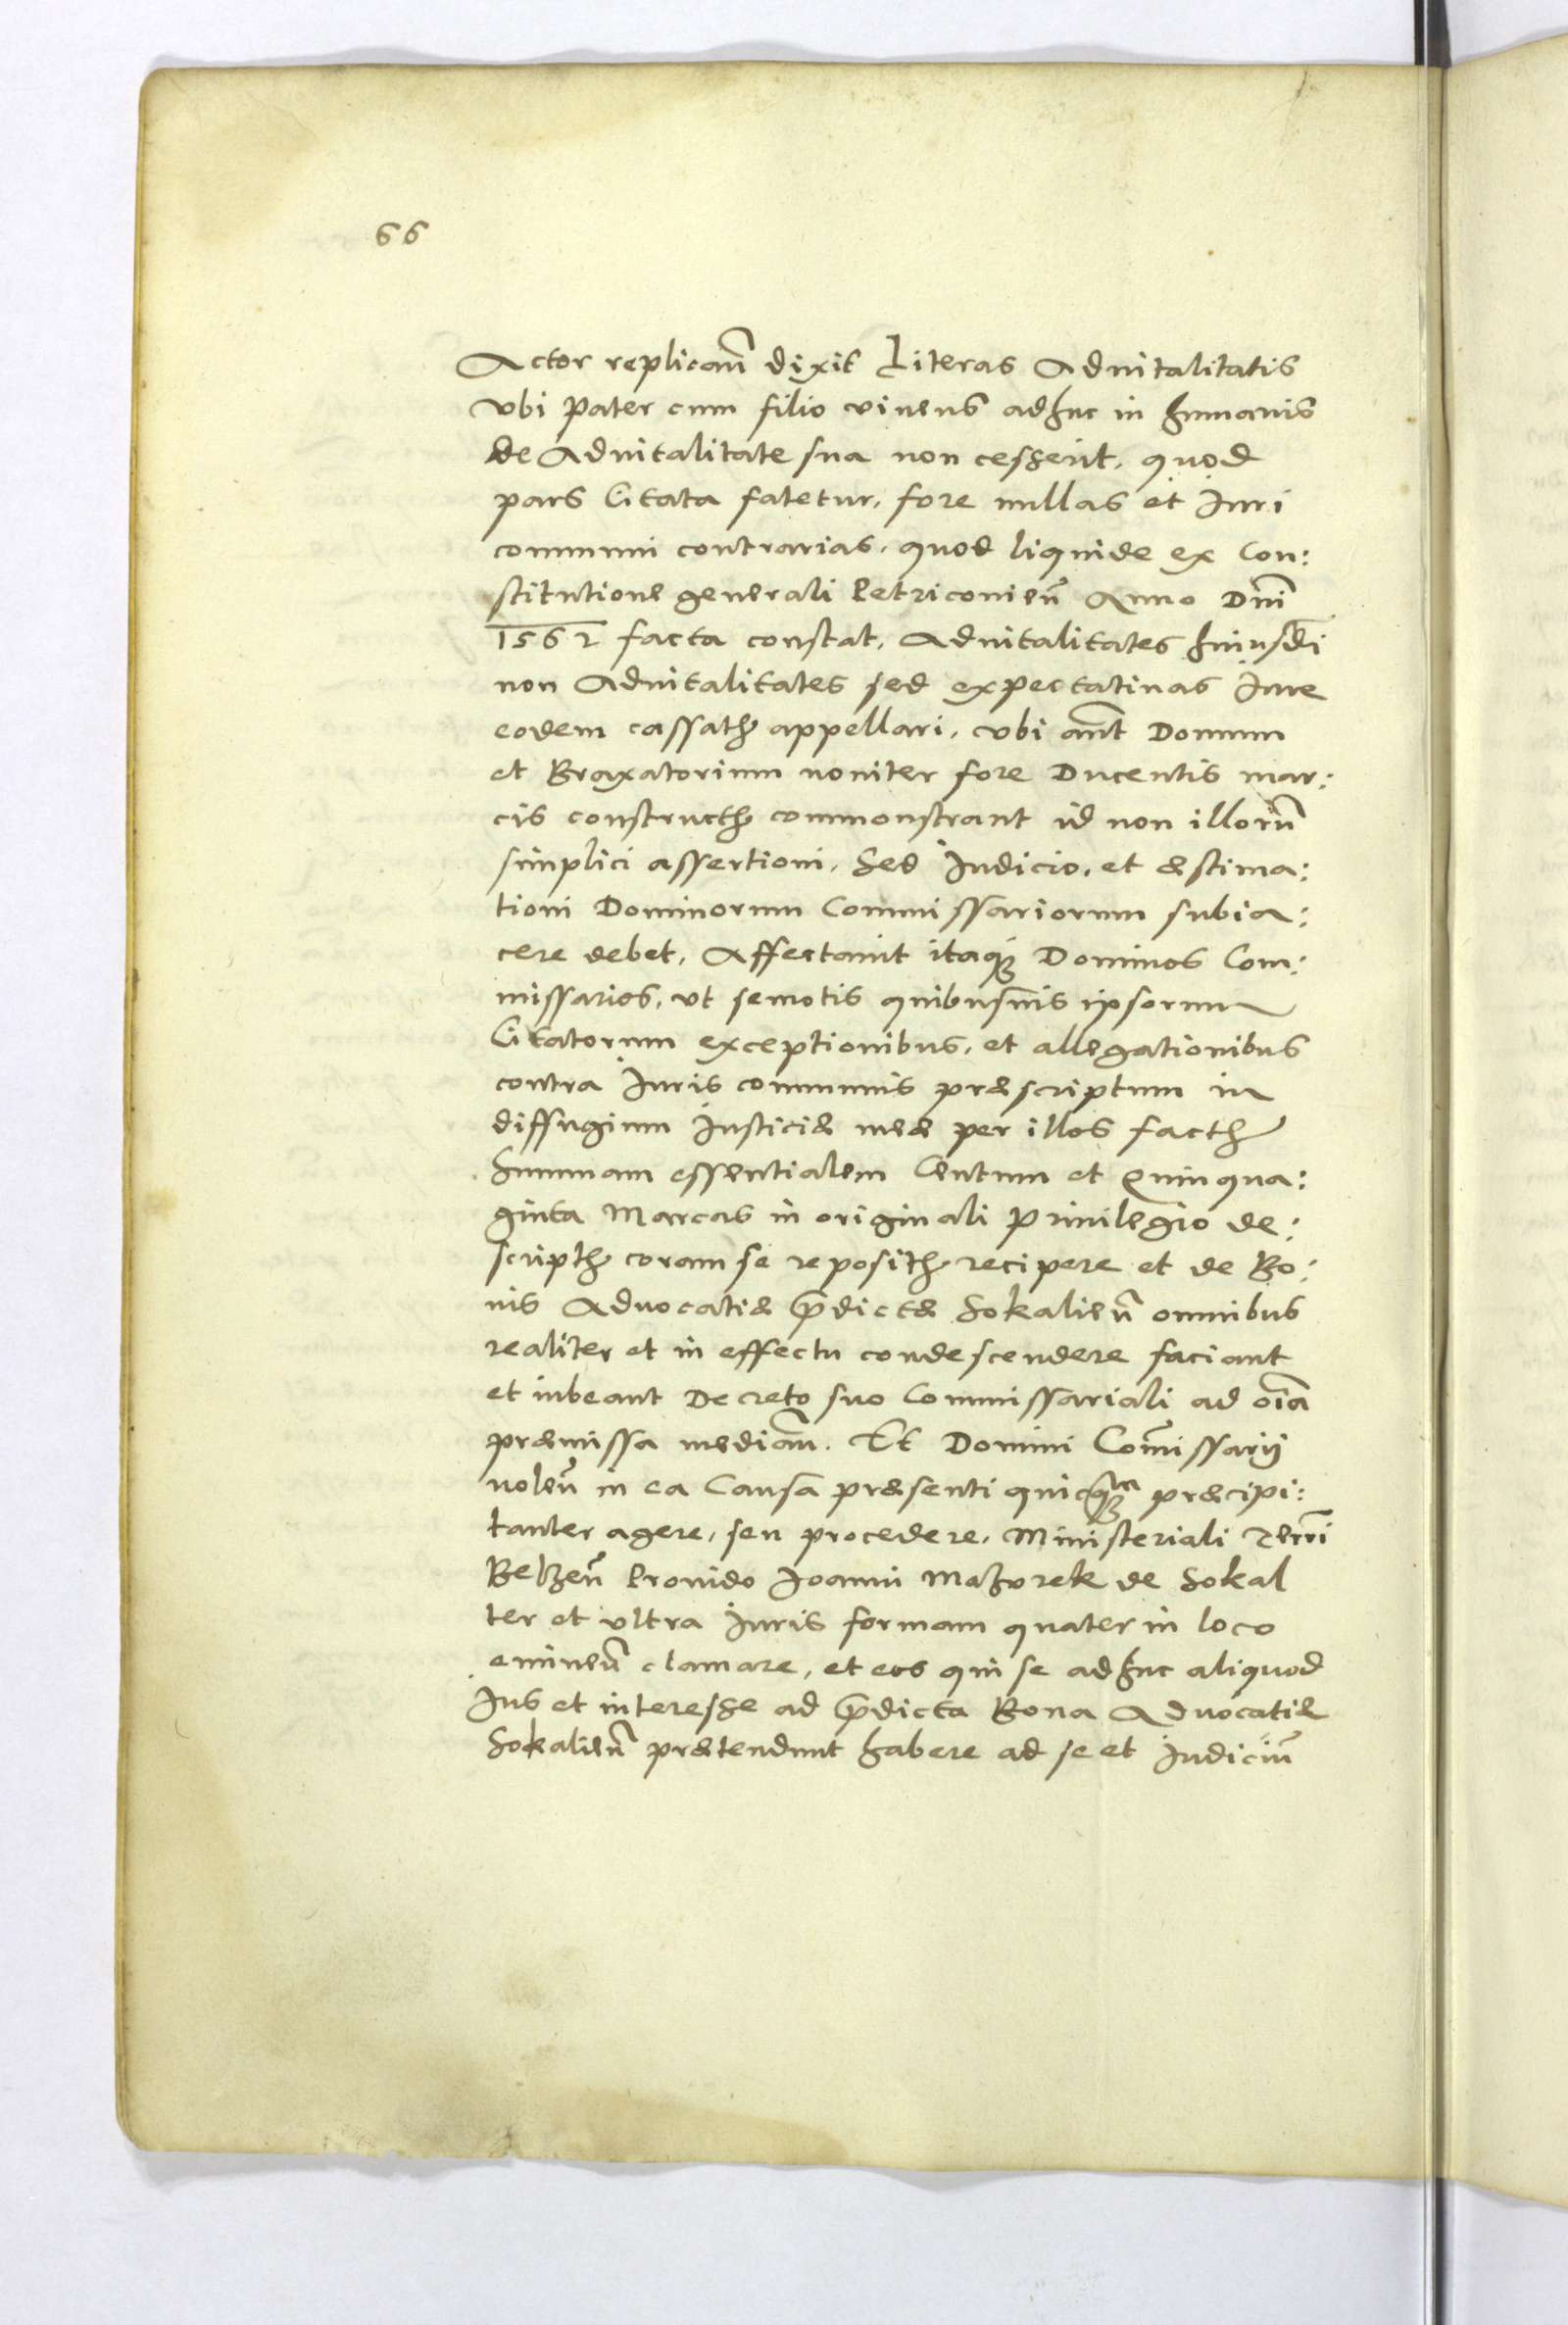 66
Actor replican̄ dixit Literas Aduitalitatis
vbi Pater cum filio viuens adhuc in humanis
de Aduitalitate sua non cesserit, quod
pars Citata fatetur, fore nullas et Iuri
communi contrarias, quod liquide ex Con:
stitutione generali Petriconien̄ Anno Dnī
1562 facta constat, Aduitalitates huiusdī
non Aduitalitates sed expectatiuas Iure
eodem cassatas appellari, vbi aut̄ Domum
et Braxatorium nouiter fore Ducentis mar:
cis constructas commonstrant id non illorū
simplici assertioni, Sed Iudicio, et æstima:
tioni Dominorum Commissariorum subia:
cere debet, Affectauit itaq3 Dominos Com:
missarios, vt semotis quibusuis ipsorum
Citatorum exceptionibus, et allegationibus
contra Iuris communis præscriptum in
diffugium Iusticiæ meæ per illos factas
Summam essentialem Centum et Quinqua:
ginta Marcas in originali Priuilegio de:
scriptas coram se repositas recipere et de Bo:
nis Aduocatiæ p̄dictæ Sokalien̄ omnibus
realiter et in effectu condescendere faciant
et iubeant Decreto suo Commissariali ad oīa
præmissa median̄. Et Domini Com̄issarij
nolen̄ in ea Causa præsenti quicq3am præcipi:
tanter agere, seu procedere, Ministeriali Terrī
Belzen̄ Prouido Joanni Mazurek de Sokal
ter et vltra Iuris formam quater in loco
eminen̄ clamare, et eos qui se adhuc aliquod
Ius et interesse ad p̄dicta Bona Aduocatiæ
Sokalien̄ prætendunt habere ad se et Iudiciū